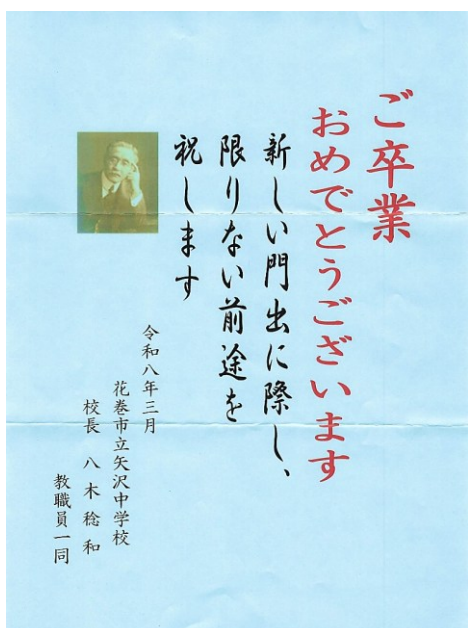 ご卒業
おめでとうございます
新しい門出に際し、
限りない前途を
祝します
令和八年三月
花巻市立矢沢中学校
校長 八木稔和
教職員一同